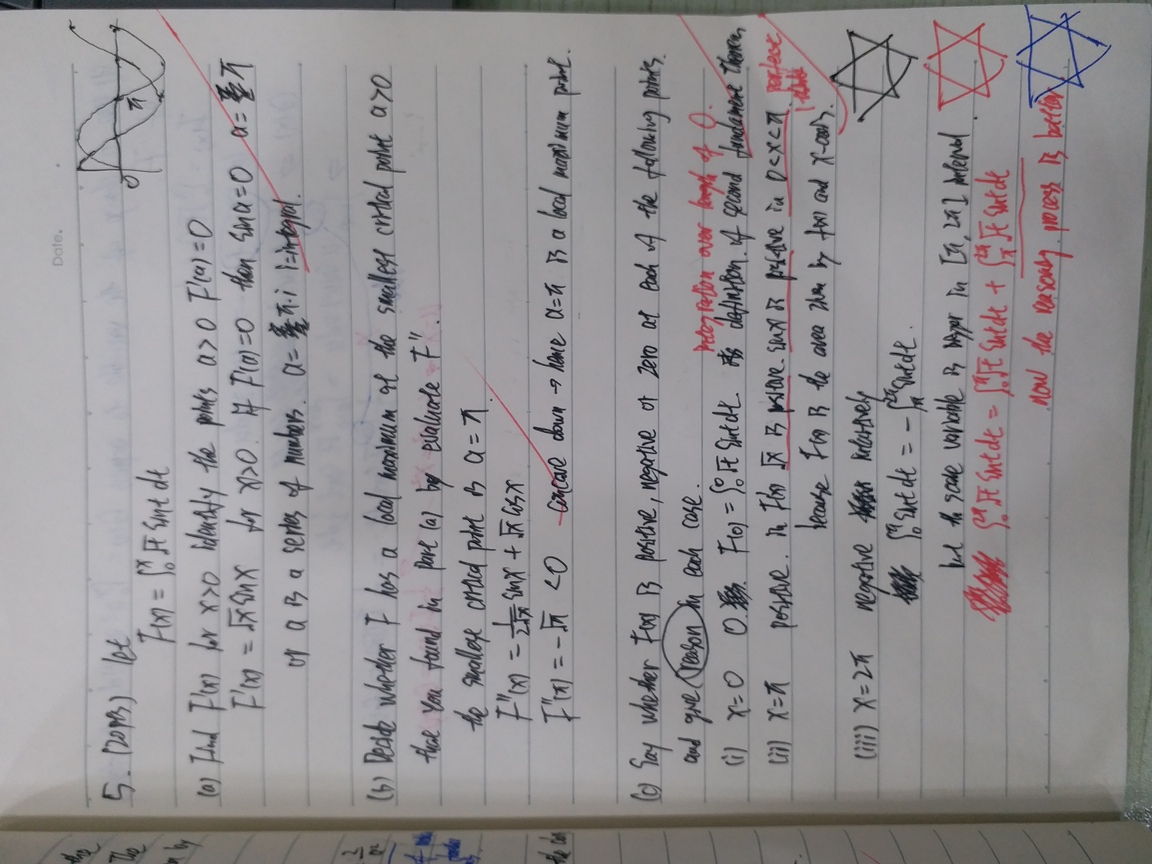 Date.
5. (20pts) let
F(x) = ∫₀ˣ √t sint dt
0 π
(a) Find F'(x) for x>0 identify the points a>0 F'(a)=0
F'(x) = √x sinx for x>0. If F'(a)=0 then sina=0 a= π
or a is a series of numbers. a= π·i i=integral.
(b) Decide whether F has a local maximum at the smallest critical point a>0
that you found in part (a) by evaluate F''.
the smallest critical point is a = π
F''(x) = 1/(2√x) sinx + √x cosx
F''(π) = -√π <0 concave down → hence a=π is a local maximum point.
(c) Say whether F(x) is positive, negative or zero at each of the following points
and give reason in each case.
integration over length of 0.
(i) x=0 0 F(0) = ∫₀⁰ √t sint dt. definition of second fundament theorem
(ii) x=π positive. in F'(x) √x is positive. sinx is positive in 0<x<π. perfect
because F(x) is the area given by f(x) and x-axis.
(iii) x=2π negative relatively
∫₀^π sint dt = -∫_π^2π sint dt.
but the scale variable is bigger in [π, 2π] interval.
∫₀^2π √t sint dt = ∫₀^π √t sint dt + ∫_π^2π √t sint dt
now the reasoning process is better